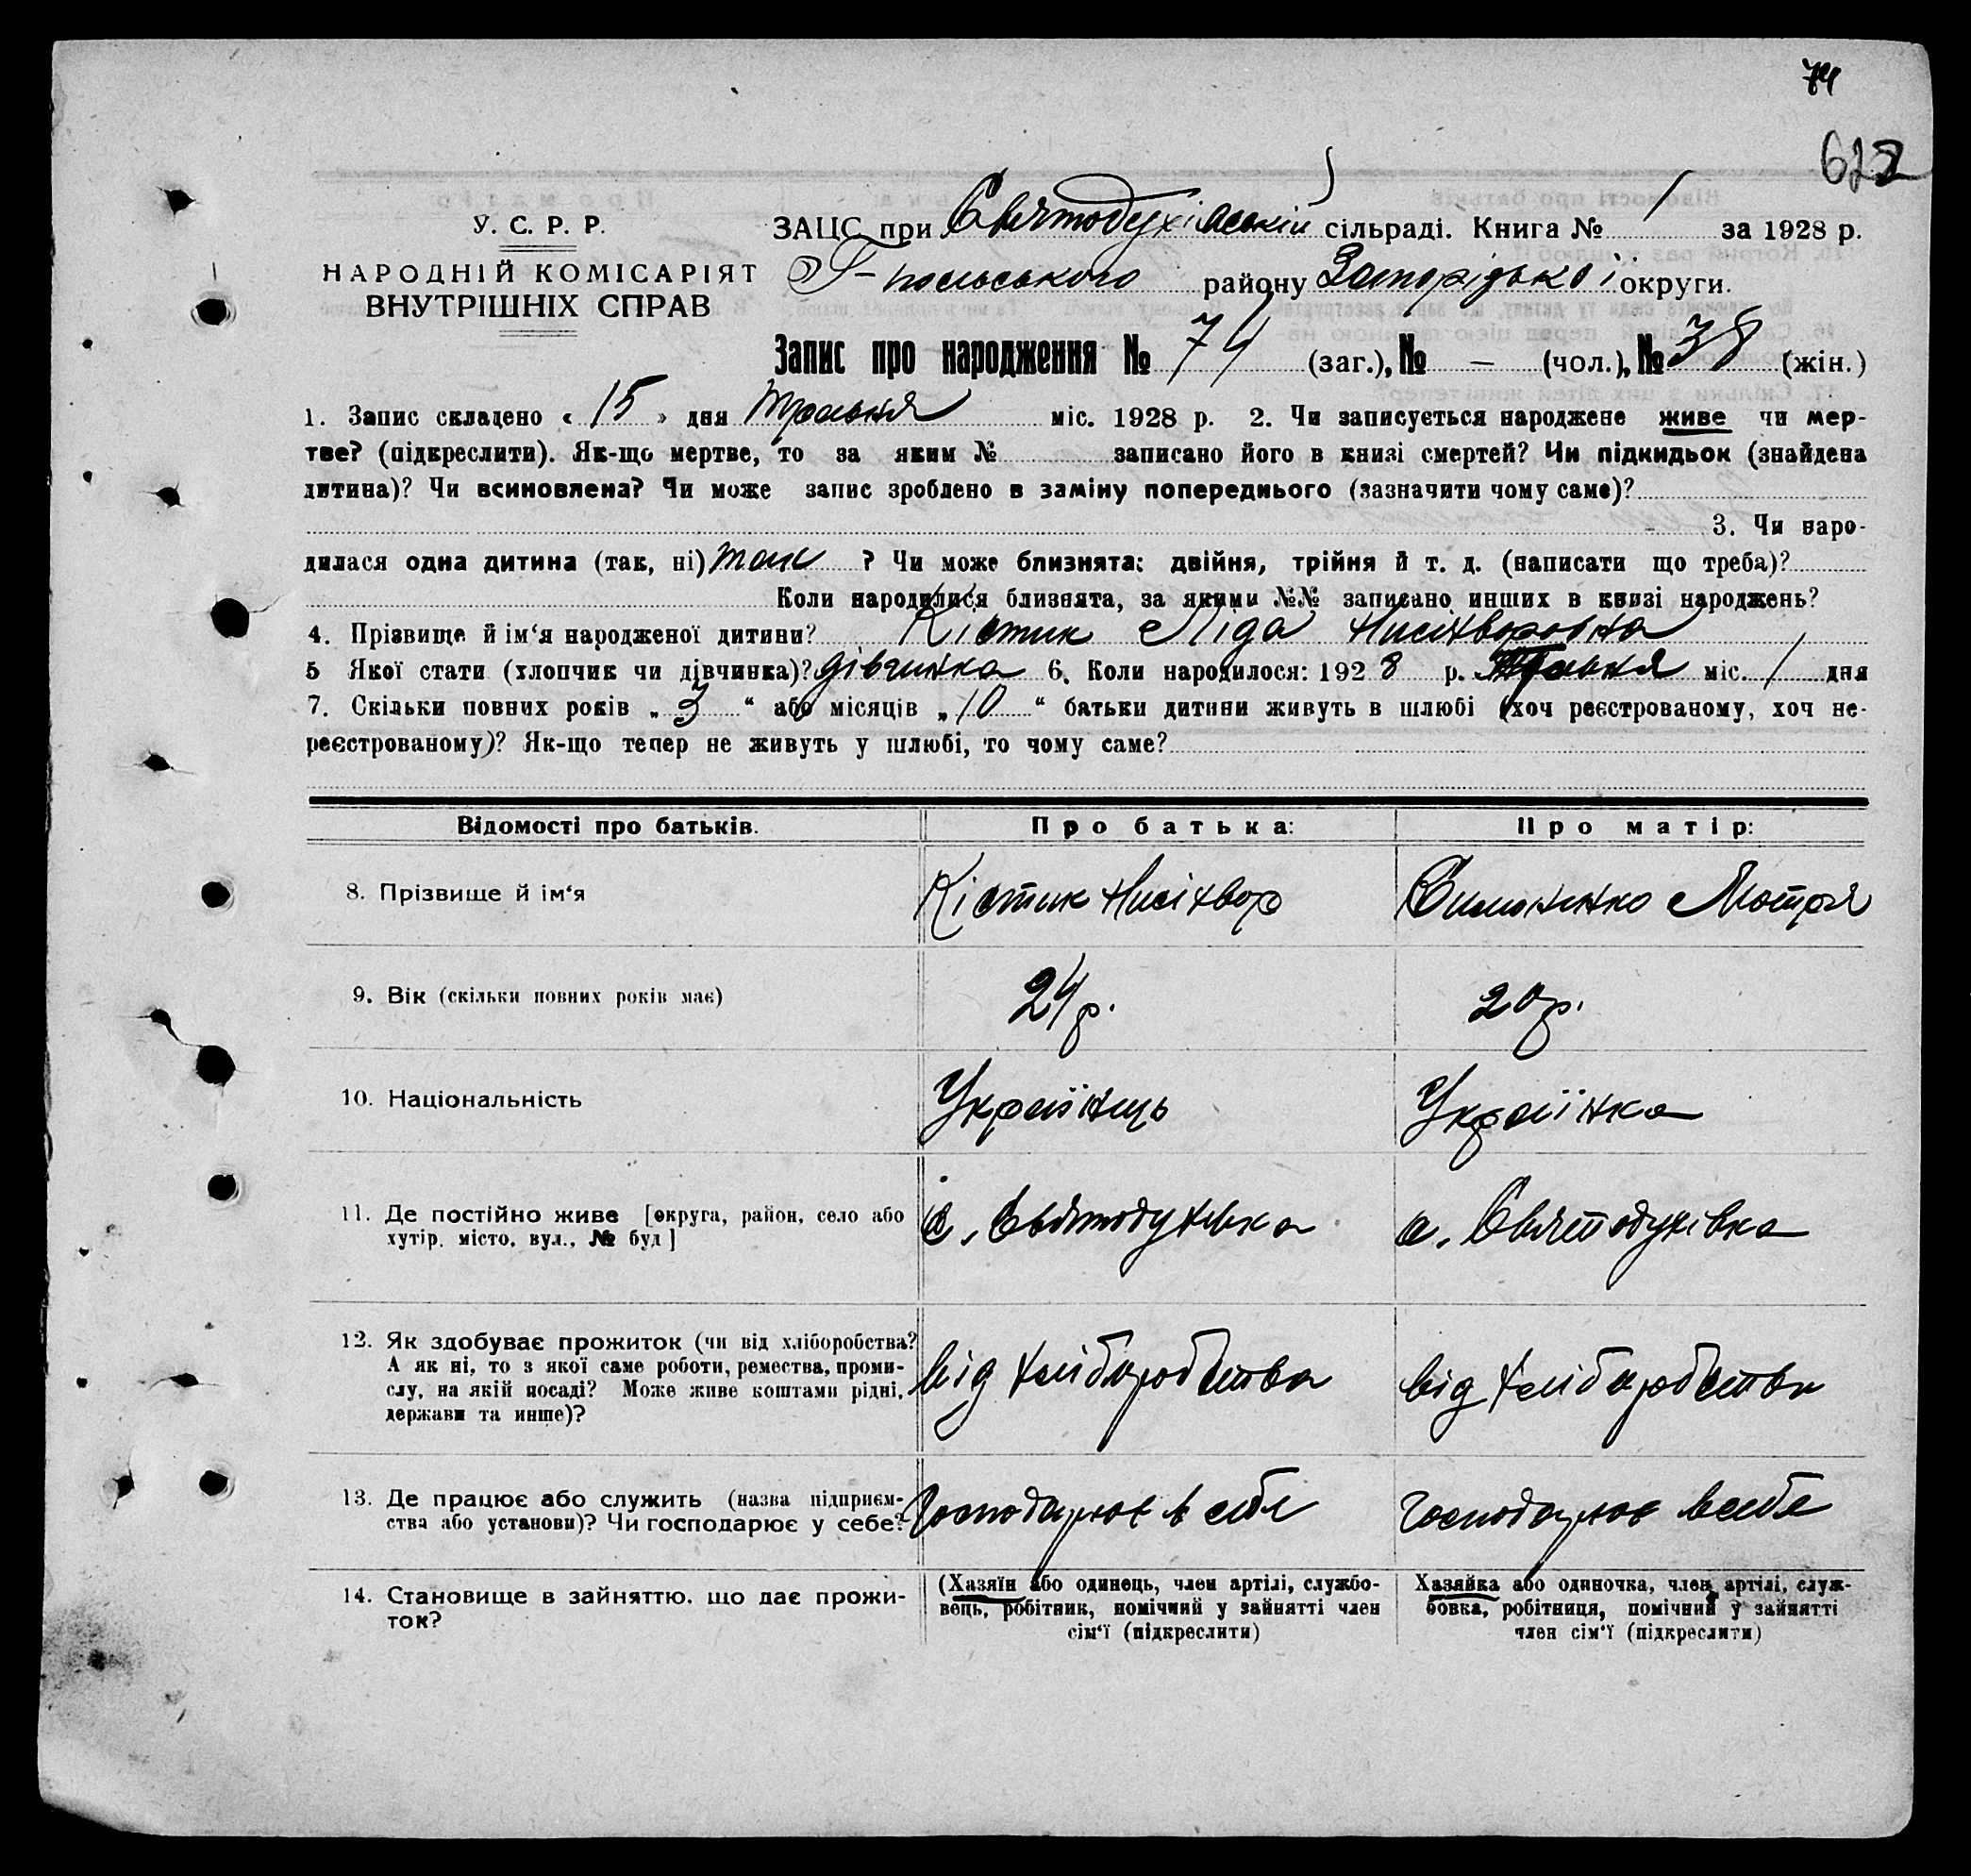 74
622
У. С. Р. Р.
НАРОДНІЙ КОМІСАРІЯТ
ВНУТРІШНІХ СПРАВ
ЗАЦС при Святодухівській сільраді. Книга № 1 за 1928 р.
Г-польського району Запорізької округи.
Запис про народження № 74 (заг.), № – (чол.), № 38 (жін.)
1. Запис складено « 15 » дня Травня міс. 1928 р. 2. Чи записується народжене живе чи мер-
тве? (підкреслити). Як-що мертве, то за яким № записано його в книзі смертей? Чи підкидьок (знайдена
дитина)? Чи всиновлена? Чи може запис зроблено в заміну попереднього (зазначити чому саме)?
3. Чи наро-
дилася одна дитина (так, ні) так ? Чи може близнята: двійня, трійня й т. д. (написати що треба)?
Коли народилися близнята, за якими №№ записано инших в книзі народжень?
4. Прізвище й ім‘я народженої дитини? Кістик Ліда
5 Якої стати (хлопчик чи дівчинка)? дівчинка 6. Коли народилося: 1928 р. Травня міс. 1 дня
7. Скільки повних років „ 3 “ або місяців „ 10 “ батьки дитини живуть в шлюбі (хоч реєстрованому, хоч не-
реєстрованому)? Як-що тепер не живуть у шлюбі, то чому саме?
Відомості про батьків. Про батька: Про матір:
8. Прізвище й ім‘я Кістик Мотря
9. Вік (скільки повних років має) 24 р. 20 р.
10. Національність Українець Українка
11. Де постійно живе [округа, район, село або
хутір, місто, вул., № буд] с. Святодухівка с. Святодухівка
12. Як здобуває прожиток (чи від хліборобства?
А як ні, то з якої саме роботи, ремества, проми-
слу, на якій посаді? Може живе коштами рідні,
держави та инше)? від хліборобства від хліборобства
13. Де працює або служить (назва підприєм-
ства або установи)? Чи господарює у себе? Господарює в себе Господарює в себе
14. Становище в зайняттю, що дає прожи-
ток?
(Хазяїн або одинець, член артілі, службо-
вець, робітник, помічний у зайнятті член
сім‘ї (підкреслити)
Хазяйка або одиночка, член артілі, служ-
бовка, робітниця, помічний у зайнятті
член сім‘ї (підкреслити)